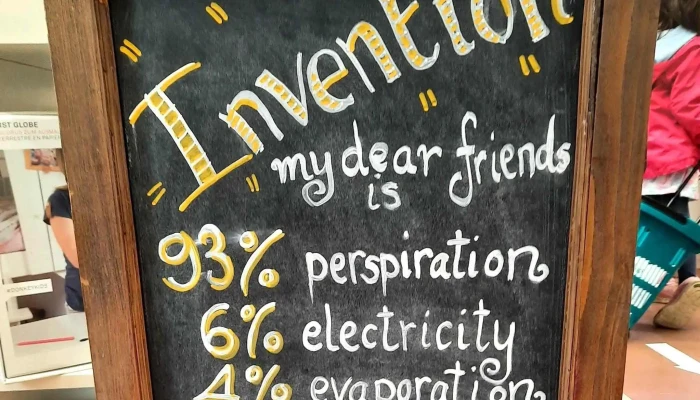 Invention
my dear friends
is
93% perspiration
6% electricity
4% evaporation